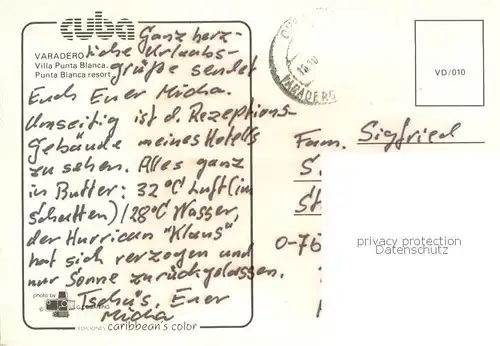 cuba
VARADERO
Villa Punta Blanca.
Punta Blanca resort
Ganz herz-
liche Urlaubs-
grüße sendet
Euch Euer Micha.
Umseitig ist d. Rezeptions-
Gebäude meines Hotels
zu sehen. Alles ganz
in Butter: 32°C Luft (im
Schatten) / 28°C Wasser,
der Hurrican "Klaus"
hat sich verzogen und
nur Sonne zurückgelassen.
Tschü's, Euer
Micha
photo by
EDICIONES caribbean's color
VARADERO
VD/010
Fam. Sigfried
S.
St
0-76
privacy protection
Datenschutz